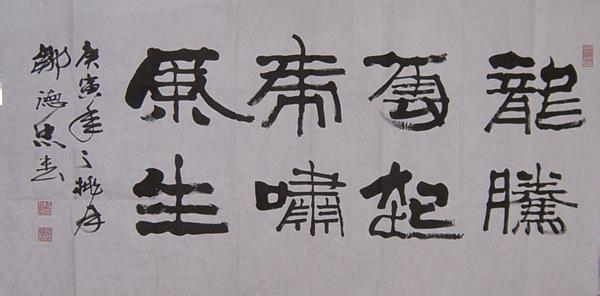 龍騰
雲起
虎嘯
風生
庚寅年之桃月
鄒德忠書